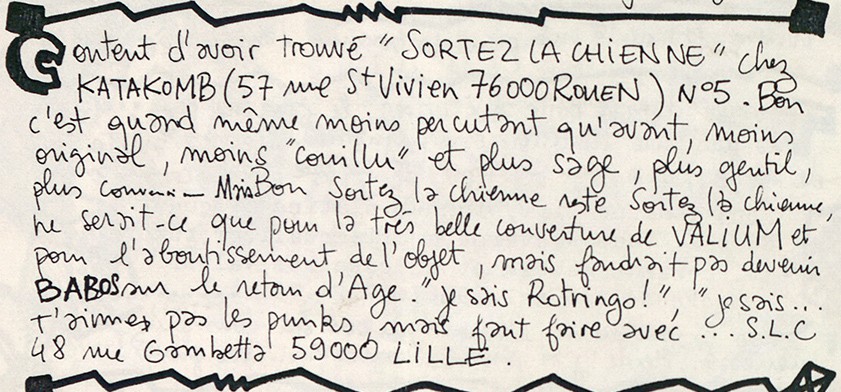 Content d'avoir trouvé "SORTEZ LA CHIENNE" chez
KATAKOMB (57 rue St Vivien 76000 ROUEN) N°5. Bon
c'est quand même moins percutant qu'avant, moins
original, moins "couillu" et plus sage, plus gentil,
plus Mais Bon Sortez la chienne reste Sortez la chienne,
ne serait-ce que pour la très belle couverture de VALIUM et
pour l'aboutissement de l'objet, mais faudrait pas devenir
BABOS sur le retour d'Age. "je sais Rotringo!", "je sais...
t'aimes pas les punks, mais faut faire avec ... S.L.C
48 rue Gambetta 59000 LILLE.